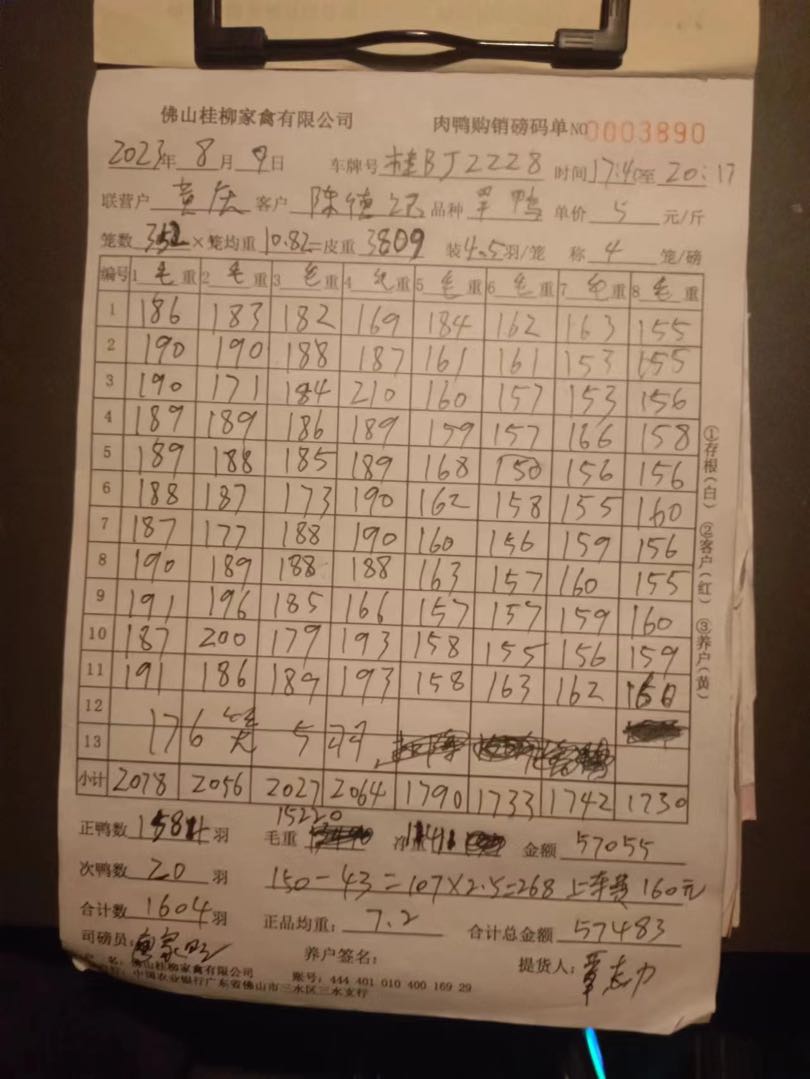 佛山桂柳家禽有限公司 肉鸭购销磅码单 NO 0003890
2023年 8月 9日 车牌号 桂BJ2228 时间 17:40至 20:17
联营户 黄 客户 陈德 品种 单鸭 单价 5 元/斤
笼数 352 ×笼均重 10.82=皮重 3809 装4.5羽/笼 称 4 笼/磅
编号 1 毛 重 2 毛 重 3 毛 重 4 毛 重 5 毛 重 6 毛 重 7 毛 重 8 毛 重
1 186 183 182 169 184 162 163 155
2 190 190 188 187 161 161 153 155
3 190 171 184 210 160 157 153 156
4 189 189 186 189 159 157 166 158
5 189 188 185 189 168 150 156 156
6 188 187 173 190 162 158 155 160
7 187 177 188 190 160 156 159 156
8 190 189 188 188 163 157 160 155
9 191 196 185 166 157 157 159 160
10 187 200 179 193 158 155 156 159
11 191 186 189 193 158 163 162 160
12
13 176笼 5羽
小计 2078 2056 2027 2064 1790 1733 1742 1730
15220
正鸭数 1584 羽 毛重 净重 11411 金额 57055
次鸭数 20 羽 150-43=107×2.5=268 上车费 160元
合计数 1604 羽 正品均重: 7.2 合计总金额 57483
司磅员: 养户签名: 提货人: 覃志力
名:佛山桂柳家禽有限公司 账号: 444 401 010 400 169 29
行:中国农业银行广东省佛山市三水区三水支行
①存根(白) ②客户(红) ③养户(黄)